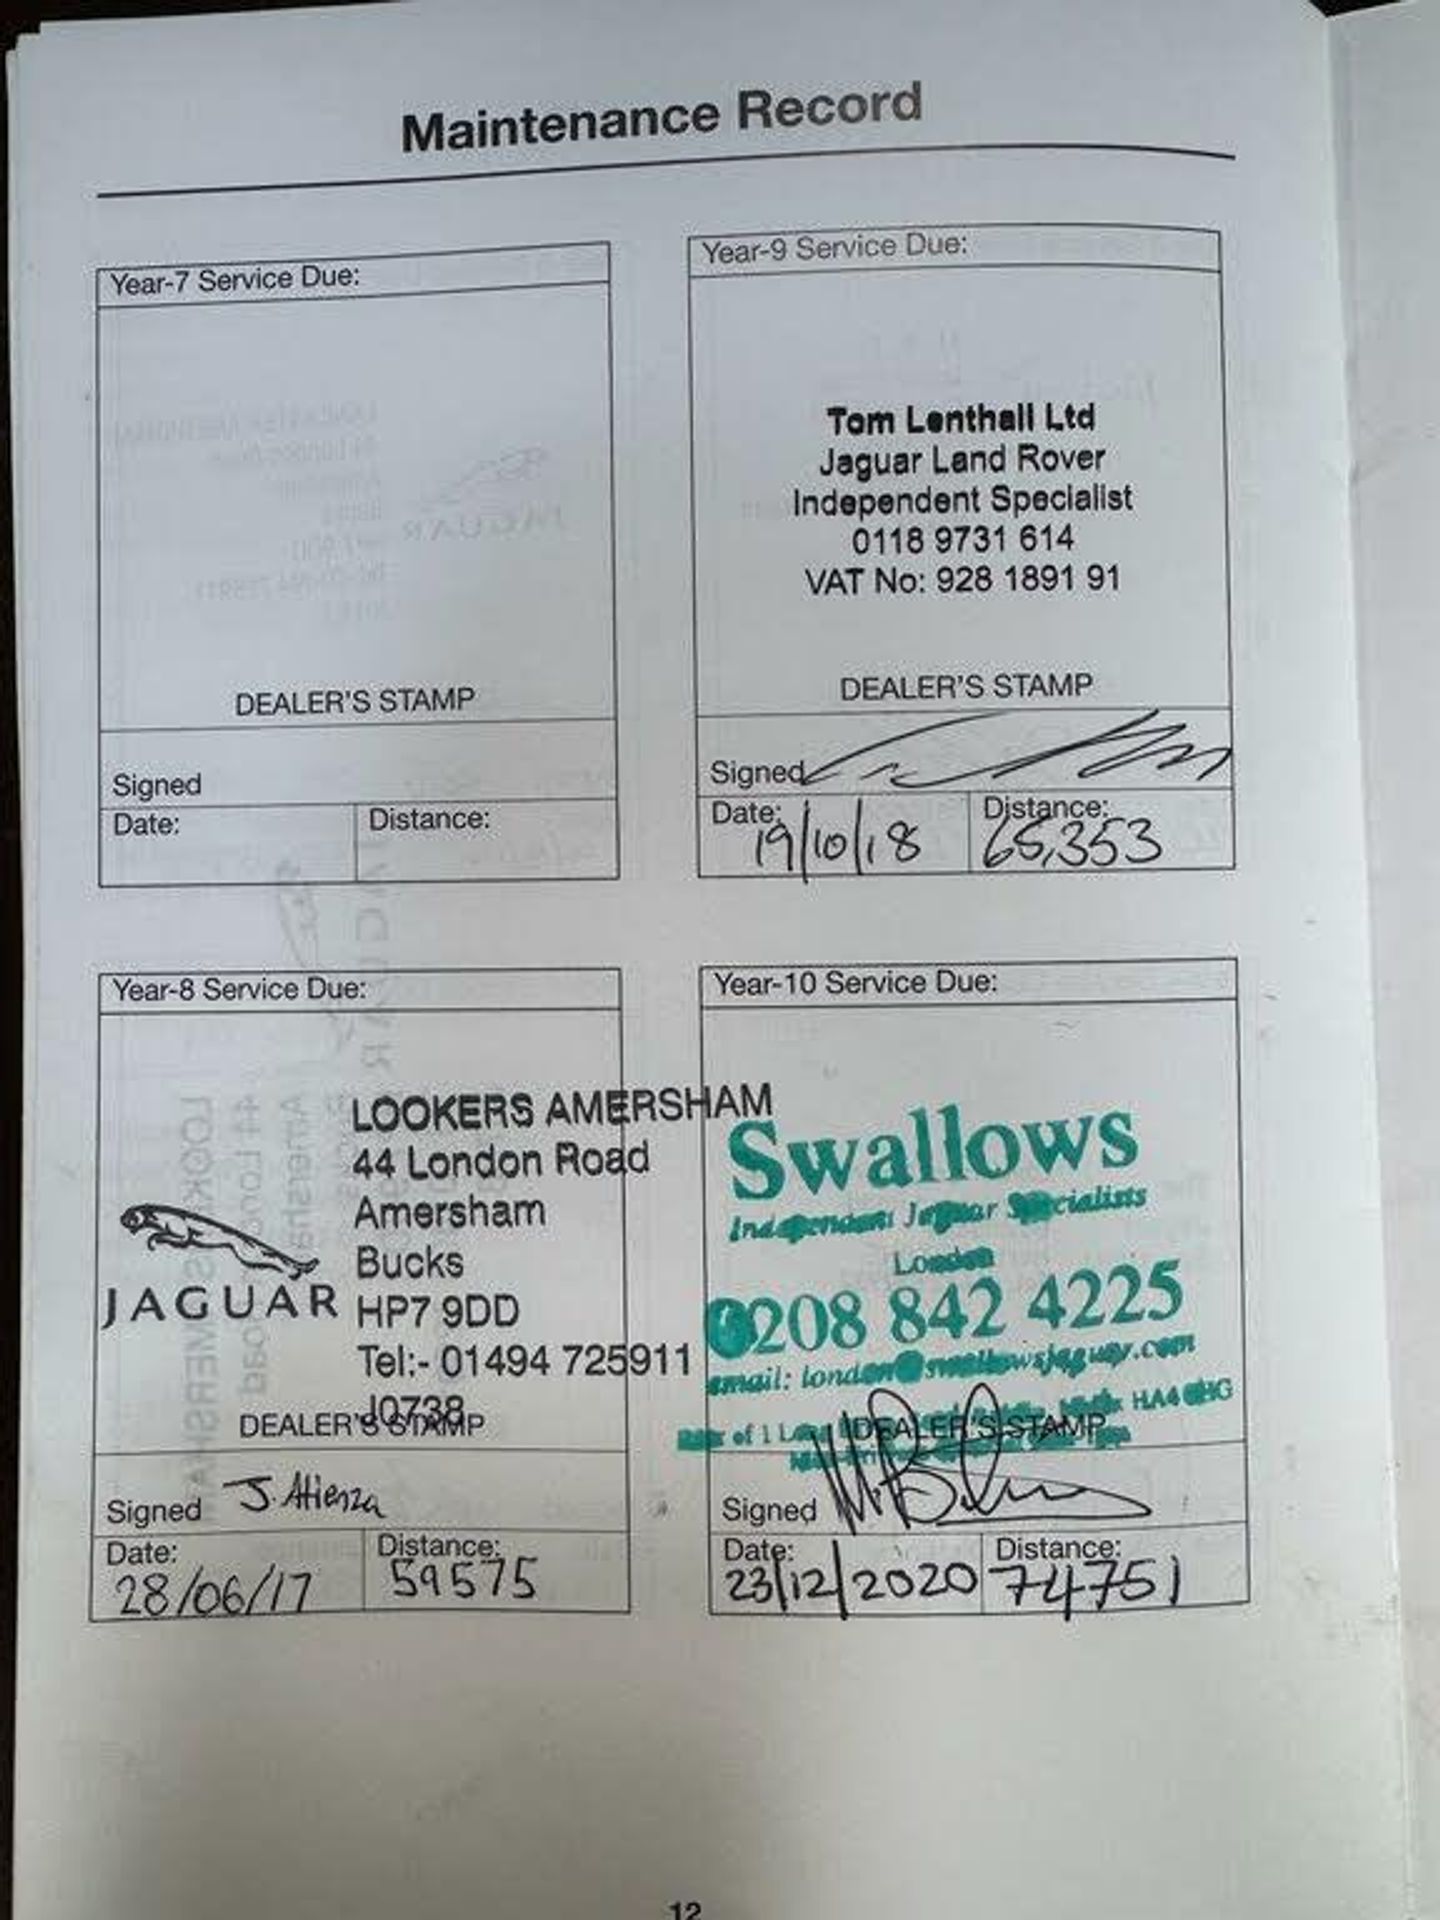 Maintenance Record
Year-7 Service Due:
DEALER'S STAMP
Signed
Date:
Distance:
Year-9 Service Due:
Tom Lenthall Ltd
Jaguar Land Rover
Independent Specialist
0118 9731 614
VAT No: 928 1891 91
DEALER'S STAMP
Signed
Date: 19/10/18
Distance: 65,353
Year-8 Service Due:
JAGUAR
LOOKERS AMERSHAM
44 London Road
Amersham
Bucks
HP7 9DD
Tel:- 01494 725911
J0738
DEALER'S STAMP
Signed J. Atienza
Date: 28/06/17
Distance: 59575
Year-10 Service Due:
Swallows
Independent Jaguar Specialists
London
0208 842 4225
email: london@swallowsjaguar.com
of 1 HA4
DEALER'S STAMP
Signed
Date: 23/12/2020
Distance: 74751
12